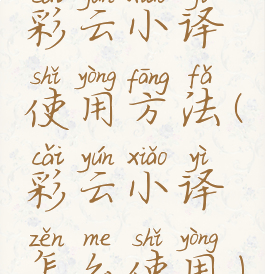 彩云小译
shǐ yòng fāng fǎ
使用方法(
cǎi yún xiǎo yì
彩云小译
zěn me shǐ yòng
怎么使用)